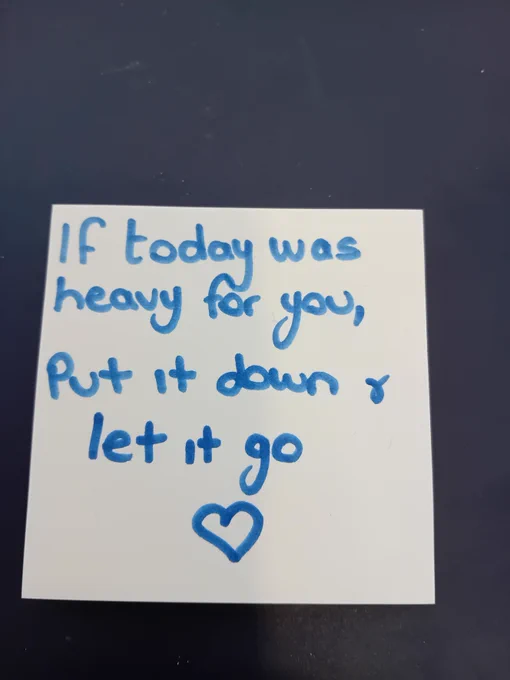 If today was
heavy for you,
Put it down &
let it go